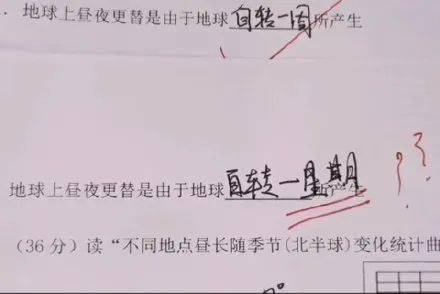 . 地球上昼夜更替是由于地球自转一周所产生
地球上昼夜更替是由于地球自转一星期所产生 ??
(36分)读“不同地点昼长随季节(北半球)变化统计曲